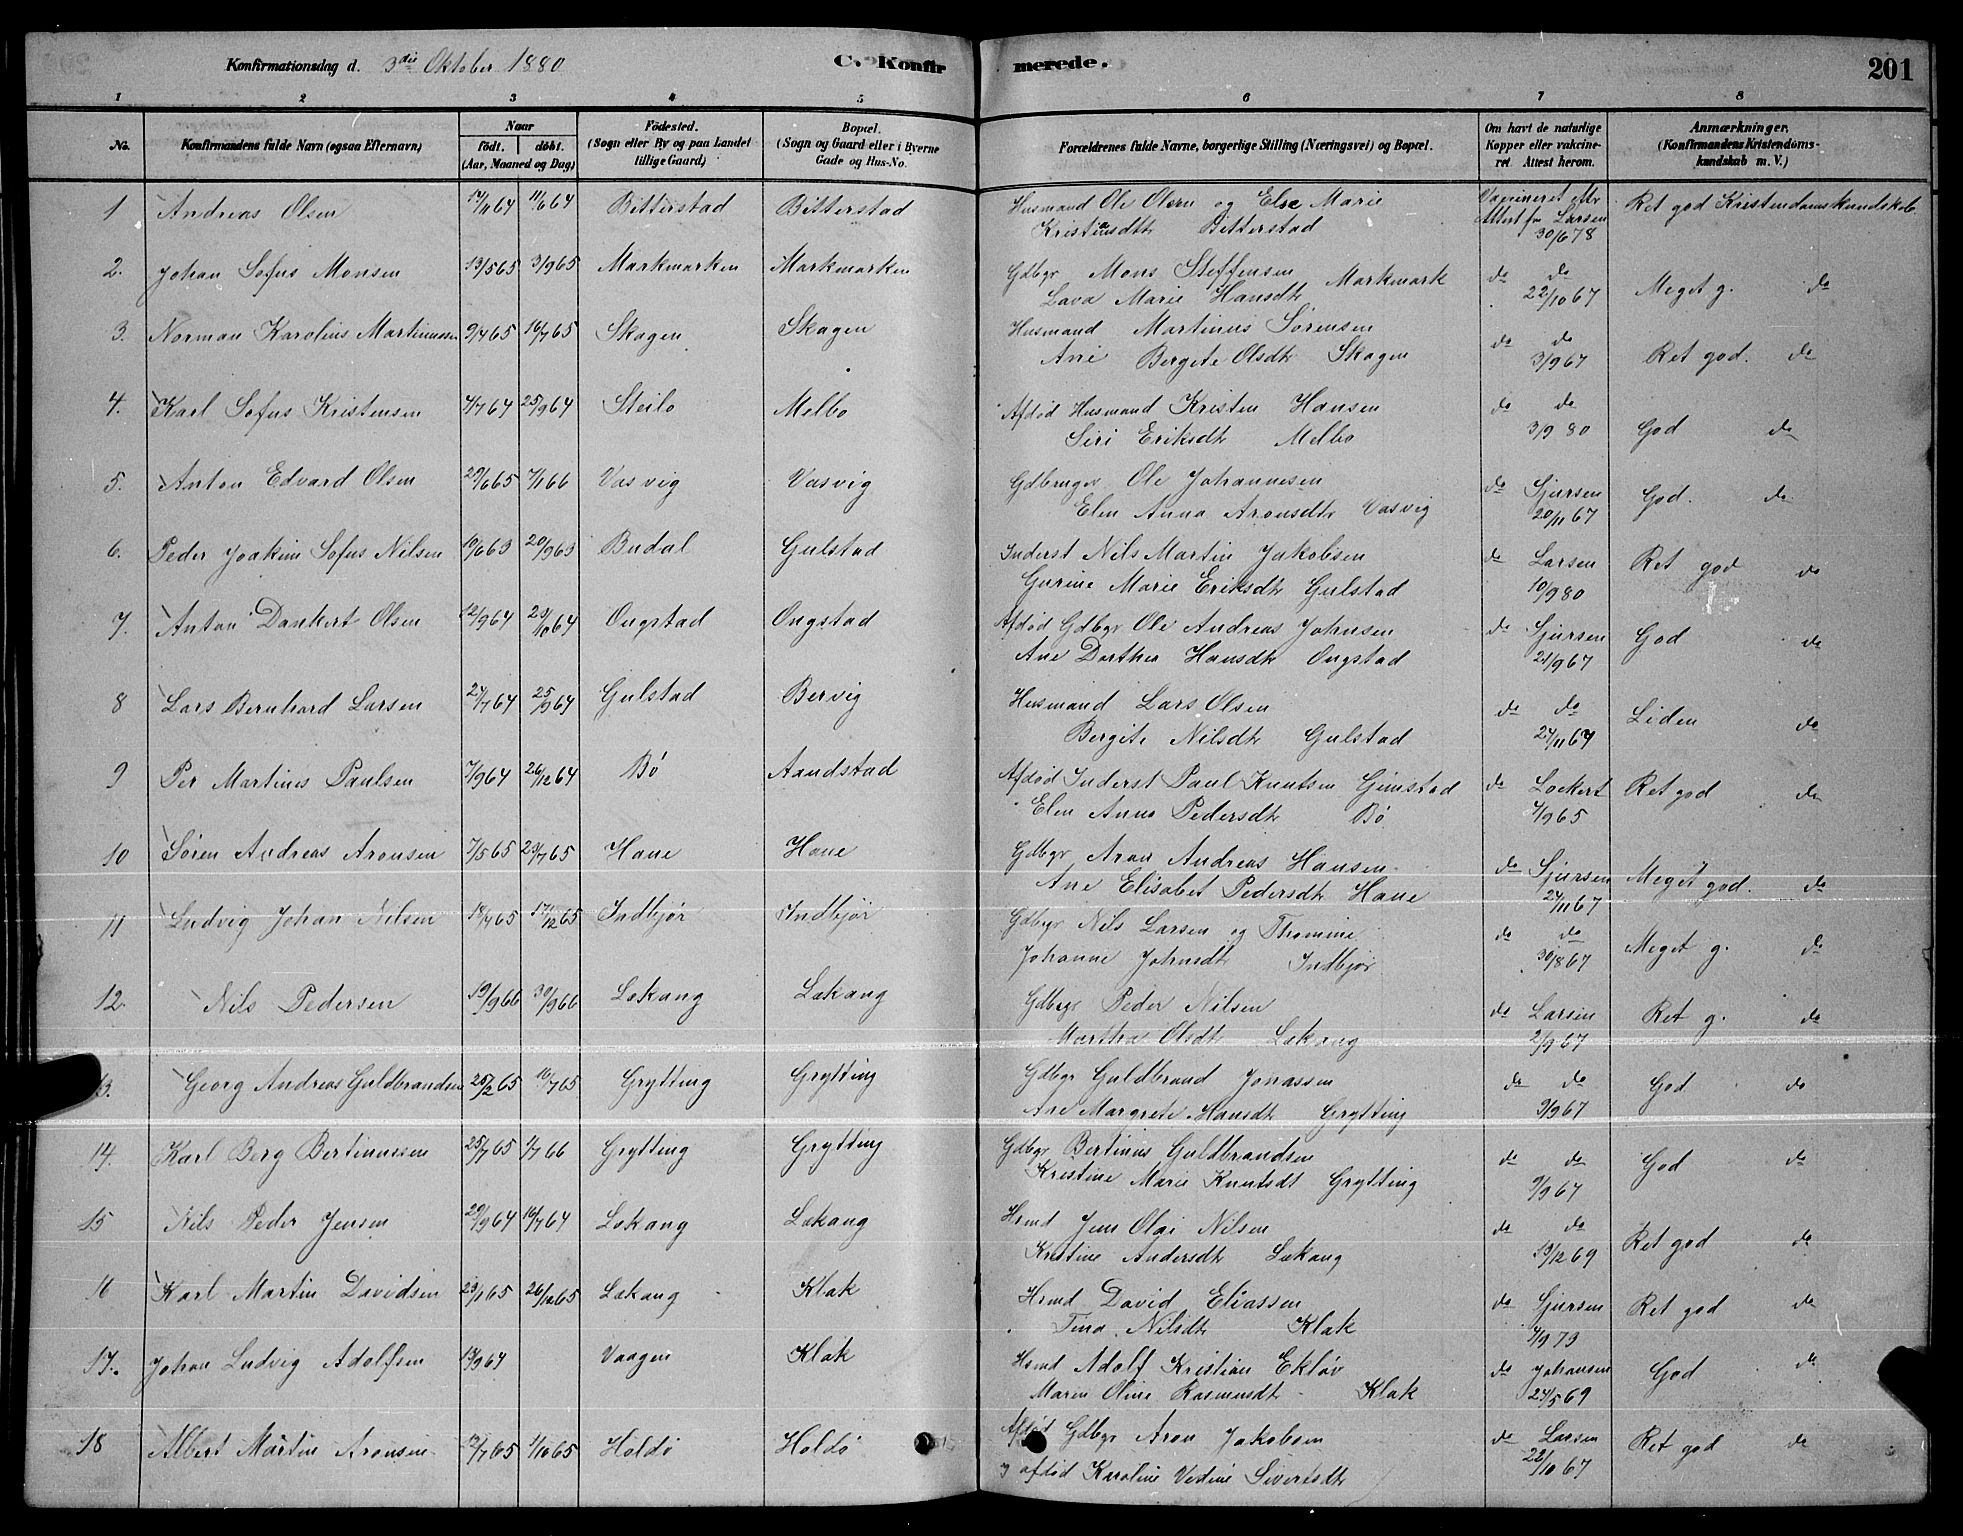 Konfirmationsdag d. 3die Oktober 1880
C. Konfirmerede.
201
1 2 3 4 5 6 7 8
No. Konfirmandens fulde Navn (ogsaa Efternavn) Naar født. døbt. (Aar, Maaned og Dag) Fødested. (Sogn eller By og paa Landet tillige Gaard) Bopæl. (Sogn og Gaard eller i Byerne Gade og Hus-No. Forældrenes fulde Navne, borgerlige Stilling (Næringsvei) og Bopæl. Om havt de naturlige Kopper eller vakcineret Attest herom. Anmærkninger. (Konfirmandens Kristendomskundskab m. V.)
1 Andreas Olsen 11/6 64 Bitterstad Bitterstad Husmand Ole Olsen og Else Marie Vaccineret efter Ret god Kristendomskundskab
Bitterstad Attest fra Larsen 30/6 78
2. Johan Sofus Monsen 13/5 65 3/9 65 Markmarken Markmarken Gdbgr Mons Steffensen Markmark do do Meget g. do
Lava Marie Hansdtr 22/10 67
3. Norman Karolius Martinussen 9/4 65 16/7 65 Skagen Skagen Husmand Martinus Sørensen do do Ret god. do
Ane Bergete Olsdtr Skagen 3/9 67
4. Karl Sofus Kristensen 4/7 64 25/9 64 Steilo Melbo Afdød Husmand Kristen Hansen do do God do
Siri Eriksdtr Melbo 3/9 80
5. Anton Edvard Olsen 29/6 65 7/1 66 Vasvig Vasvig Gdbruger Ole Johannesen do Sjursen God. do
Elen Anna Aronsdtr Vasvig 20/11 67
6. Peder Joakim Sofus Nilsen 10/6 63 20/9 63 Budal Gulstad Inderst Nils Martin Jakobsen do Larsen Ret god do
Gurine Marie Eriksdtr Gulstad 10/9 80
7. Anton Dankert Olsen 12/9 64 23/10 64 Ongstad Ongstad Afdød Gdbgr Ole Andreas Johnsen do Sjursen God do
Ane Dorthea Hansdtr Ongstad 21/9 67
8 Lars Bernhard Larsen 27/7 64 25/9 64 Gulstad Bervig Husmand Lars Olsen do do Liden do
Bergite Nilsdtr Gulstad 27/11 67
9 Per Martinus Paulsen 7/9 64 26/12 64 Bø Aandstad Afdød Inderst Paul Knutsen Gimstad do Lockert Ret god do
Elen Anna Pedersdtr Bø 4/9 65
10 Søren Andreas Aronsen 7/5 65 23/7 65 Hane Hane Gdbgr Aron Andreas Hansen do Sjursen Meget god. do
Ane Elisabet Pedersdtr Hane 24/11 67
11 Ludvig Johan Nilsen 17/12 65 Indbjør Indbjør Gdbgr Nils Larsen og Thomine do do Meget g. do
Johanne Johnsdtr Indbjør 30/8 67
12. Nils Pedersen 19/9 66 30/9 66 Lekang Lekang Gdbgr Peder Nilsen do Larsen Ret g. do
Martha Olsdtr Lekang 2/9 67
13. Georg Andreas Guldbrandsen 25/2 65 16/7 65 Grytting Grytting Gdbgr Guldbrand Jonassen do do God do
Ane Margrete Hansdtr Grytting 9/9 67
14. Karl Berg Bertinussen 25/7 65 1/7 66 Grytting Grytting Gdbgr Bertinus Guldbrandsen do do God do
Kristine Marie Knutsdt Grytting 9/9 67
15 Nils Peder Jensen 16/7 64 Lekang Lekang Hsmd Jens Olai Nilsen do do Ret god do
Kristine Andersdtr Lekang 19/12 69
16 Karl Martin Davidsen 23/1 65 26/12 65 Lekang Klak Hsmd David Eliassen do Sjursen Ret god do
Tina Nilsdtr Klak 4/9 73
17. Johan Ludvig Adolfsen 13/9 64 Vaagen Klak Hsmd Adolf Kristian Ekløv do Johansen God do
Maren Oline Rasmusdtr Klak 24/5 69
18 Albert Martin Aronsen 1/10 65 Holdø Holdø Afdød Gdbgr Aron Jakobsen do Larsen Ret god do
og afdød Karoline Vedine Sivertsdtr 22/10 67